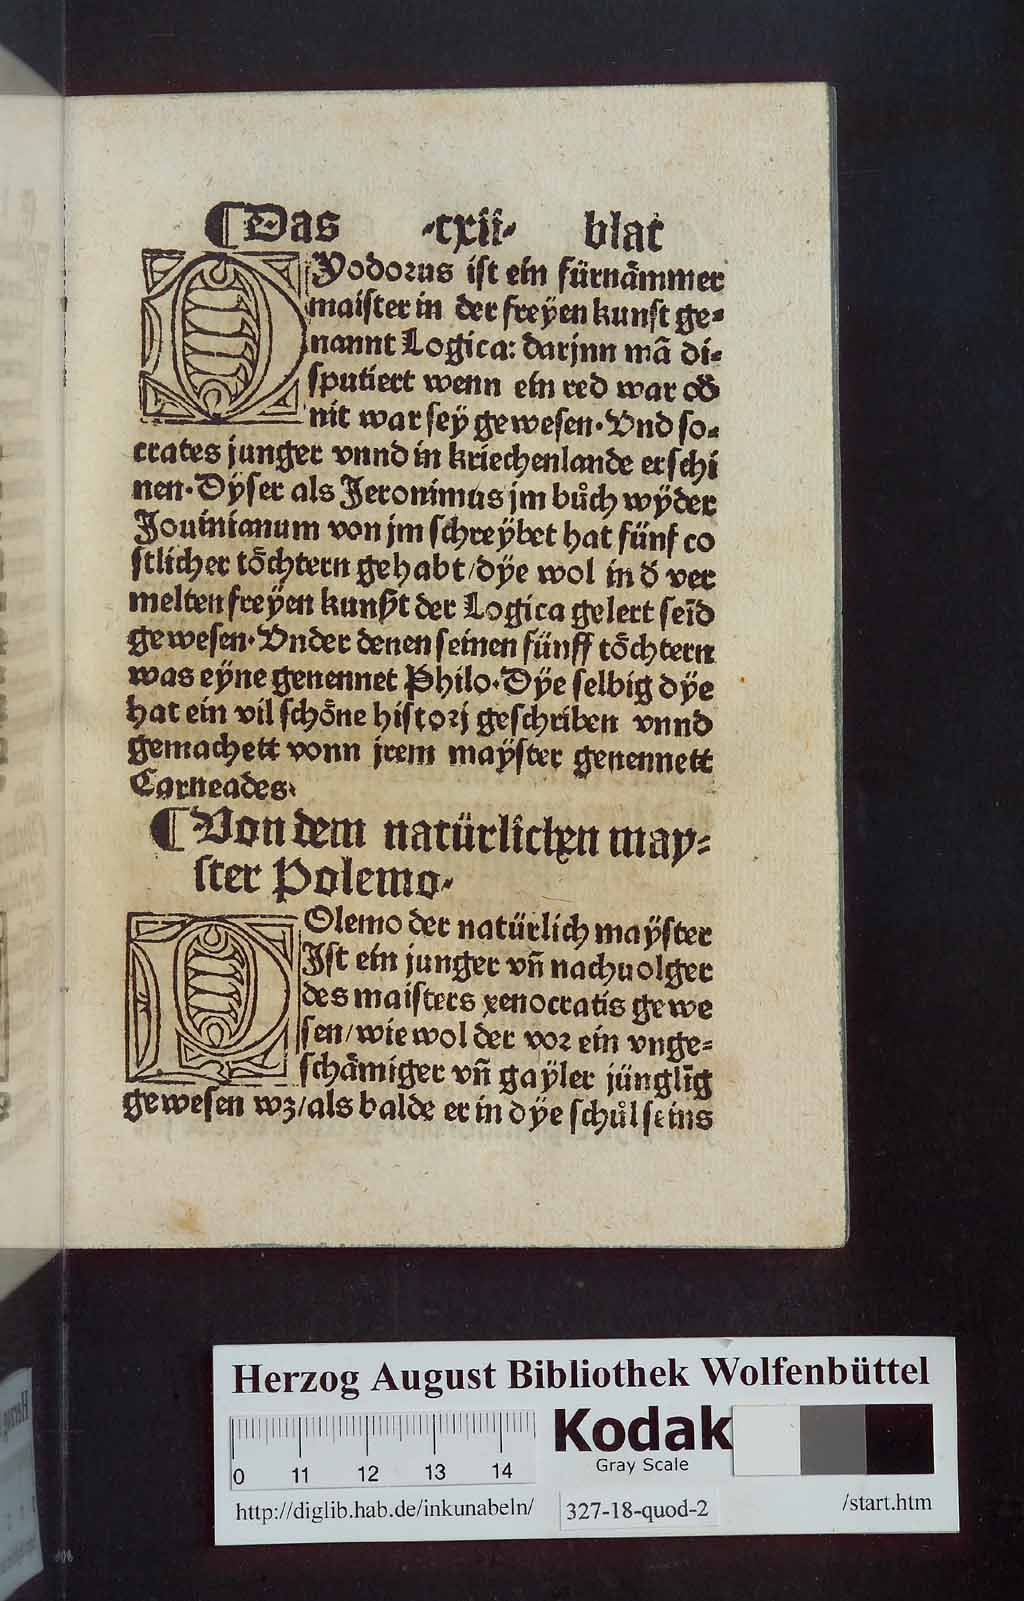 ¶ Das ·cxii· blat
DYodorus ist ein fürnåmmer
maister in der freÿen kunst ge⸗
nannt Logica: darjnn mā di⸗
sputiert wenn ein red war od̄
nit war seÿ gewesen· Vnd so⸗
crates junger vnnd in kriechenlande erschi
nen· Dÿser als Jeronimus jm bůch wÿder
Jouinianum von jm schreÿbet hat fünf co
stlicher tôchtern gehabt/dÿe wol in d̄ ver
melten freÿen kunst der Logica gelert seīd
gewesen· Vnder denen seinen fünff tôchtern
was eÿne genennet Philo· Dÿe selbig dÿe
hat ein vil schône historj geschriben vnnd
gemachett vonn jrem maÿster genennett
Carneades·
¶ Von dem natürlichen may⸗
ster Polemo·
POlemo der natürlich maÿster
Jst ein junger vñ nachuolger
des maisters xenocratis gewe
sen/wiewol der vor ein vnge⸗
schåmiger vñ gaÿler jünglīg
gewesen wz/als balde er in dÿe schůl seins
Herzog August Bibliothek Wolfenbüttel
0 11 12 13 14
Kodak
Gray Scale
http://diglib.hab.de/inkunabeln/ 327-18-quod-2 /start.htm